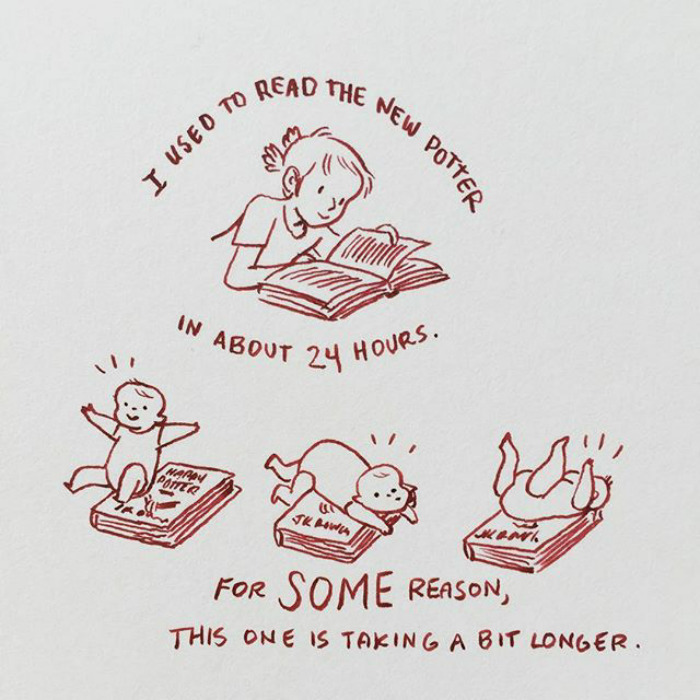 I USED TO READ THE NEW POTTER
IN ABOUT 24 HOURS.
HARRY
POTTER
JK ROWL
FOR SOME REASON,
THIS ONE IS TAKING A BIT LONGER.